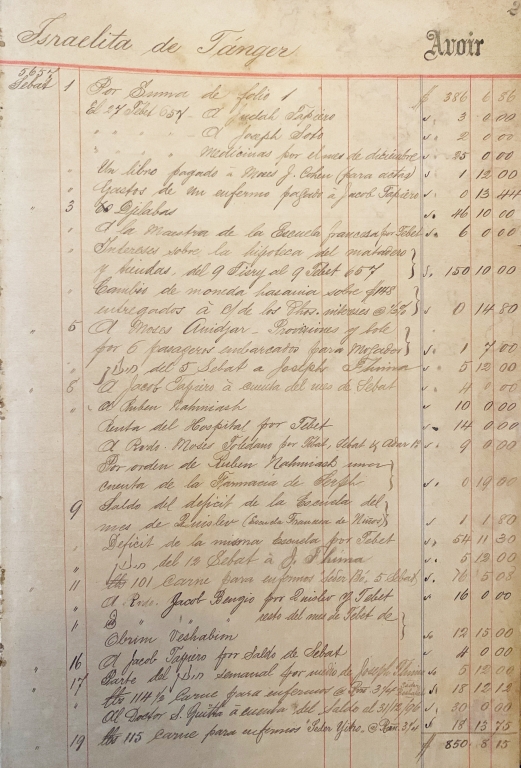 2
Israelita de Tánger
Avoir
5657
Sebat 1 Por Suma de folio 1 $ 386 6 86
El 27 Tebet 657 - A Judah Tapiero s. 3 0 00
" " " " A Joseph Soto s. 2 0 00
" " " " Medicinas por el mes de diciembre s. 25 0 00
" Un libro pagado á Moses J. Cohen (para actas) s. 1 12 00
" Gastos de un enfermo pagado á Jacob Tapiero s. 0 13 44
" 3 Djilabas s. 46 10 00
" A la Maestra de la Escuela francesa por Tebet s. 6 0 00
" Intereses sobre la hipoteca del matadero
y tiendas, del 9 Tisry al 9 Tebet 657 s. 150 10 00
" Cambio de moneda hasania sobre $148
entregados á c/ de los dhos. intereses s. 0 14 80
" 5 A Moses Amidgar - Provisiones y bote
por 6 pasageros embarcados para Mogador s. 1 7 00
" del 5 Sebat a Joseph Thima s. 5 12 00
" 8 A Jacob Tapiero á cuenta del mes de Sebat s. 4 0 00
" A Ruben Nahmiash s. 10 0 00
Renta del Hospital por Tebet s. 14 0 00
A Rodo. Moses Toledano por Tebat, Sebat y Adar s. 9 0 00
Por orden de Ruben Nahmiash
cuenta de la Farmacia de s. 0 19 00
9 Saldo del deficit de la Escuela del
mes de Quislev (Escuela Francesa de Niños) s. 1 1 80
" Deficit de la misma Escuela por Tebet s. 54 11 30
" del 12 Sebat á J. Thima s. 5 12 00
" 11 lbs 101 Carne para enfermos Seder Bó, 5 Sebat, s. 76 5 08
" A Rodo. Jacob Bengio por Quislev y Tebet s. 16 0 00
" " " " resto del mes de Tebet de
Ebrim Veshabim s. 12 15 00
" 16 A Jacob Tapiero por Saldo de Sebat s. 4 0 00
" 17 Parte del semanal por medio de Joseph Thima s. 5 12 00
" lbs 114½ Carne para enfermos s. 18 12 12
Al Doctor S. Guitta á cuenta del Saldo al 31/12/96 s. 30 0 00
" 19 lbs 115 Carne para enfermos Seder Yitro s. 18 15 75
$ 850 8 15